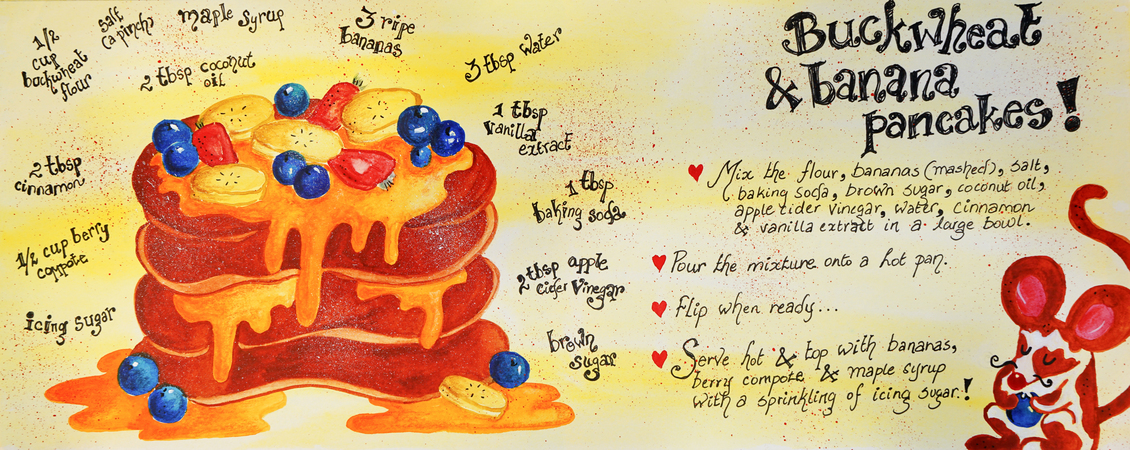 1/2
cup
buckwheat
flour
salt
(a pinch)
maple syrup
2 tbsp coconut
oil
3 ripe
bananas
3 tbsp water
1 tbsp
vanilla
extract
2 tbsp
cinnamon
1 tbsp
baking soda
1/2 cup berry
compote
2 tbsp apple
cider vinegar
icing sugar
brown
sugar
Buckwheat
& banana
pancakes!
Mix the flour, bananas (mashed), salt,
baking soda, brown sugar, coconut oil,
apple cider vinegar, water, cinnamon
& vanilla extract in a large bowl.
Pour the mixture onto a hot pan.
Flip when ready...
Serve hot & top with bananas,
berry compote & maple syrup
with a sprinkling of icing sugar.!